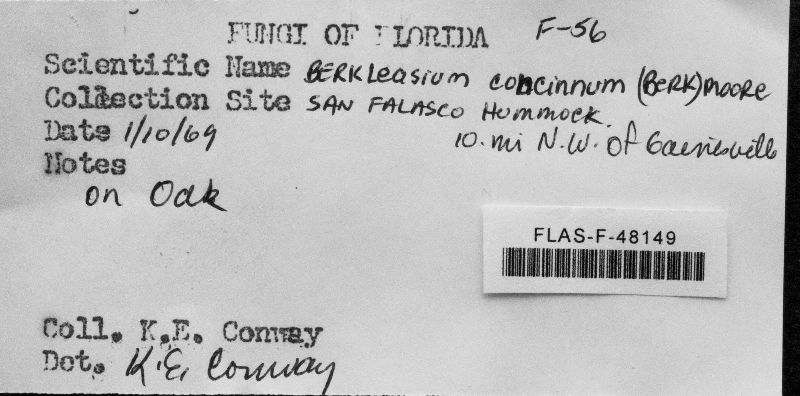 FUNGI OF FLORIDA F-56
Scientific Name BERKLeasium concinnum (BERK) MOORE
Collection Site SAN FALASCO Hummock.
Date 1/10/69 10. mi N.W. of Gainesville
Notes
on Oak
FLAS-F-48149
Coll. K.E. Conway
Det. K.E. Conway